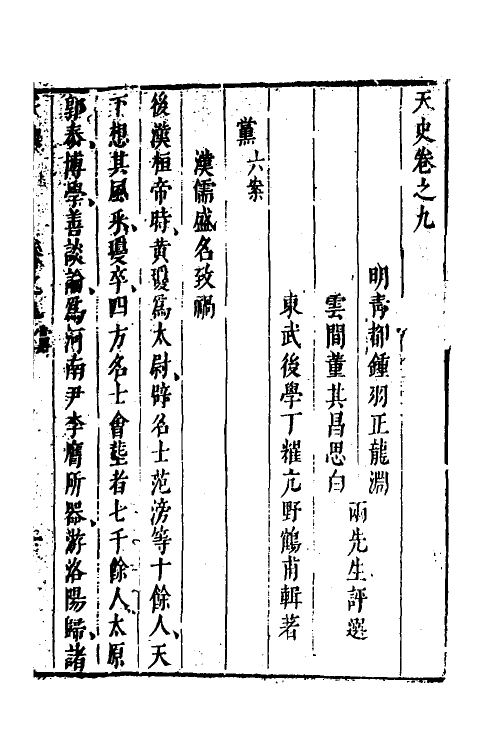 天史卷之九
明青郡鍾羽正龍淵
雲間董其昌思白
兩先生評選
東武後學丁耀亢野鶴甫輯著
黨六案
漢儒盛名致禍
後漢桓帝時黃瓊為太尉辟名士范滂等十餘人天
下想其風采瓊卒四方名士會塟者七千餘人太原
郭泰博學善談論爲河南尹李膺所器游洛陽歸諸